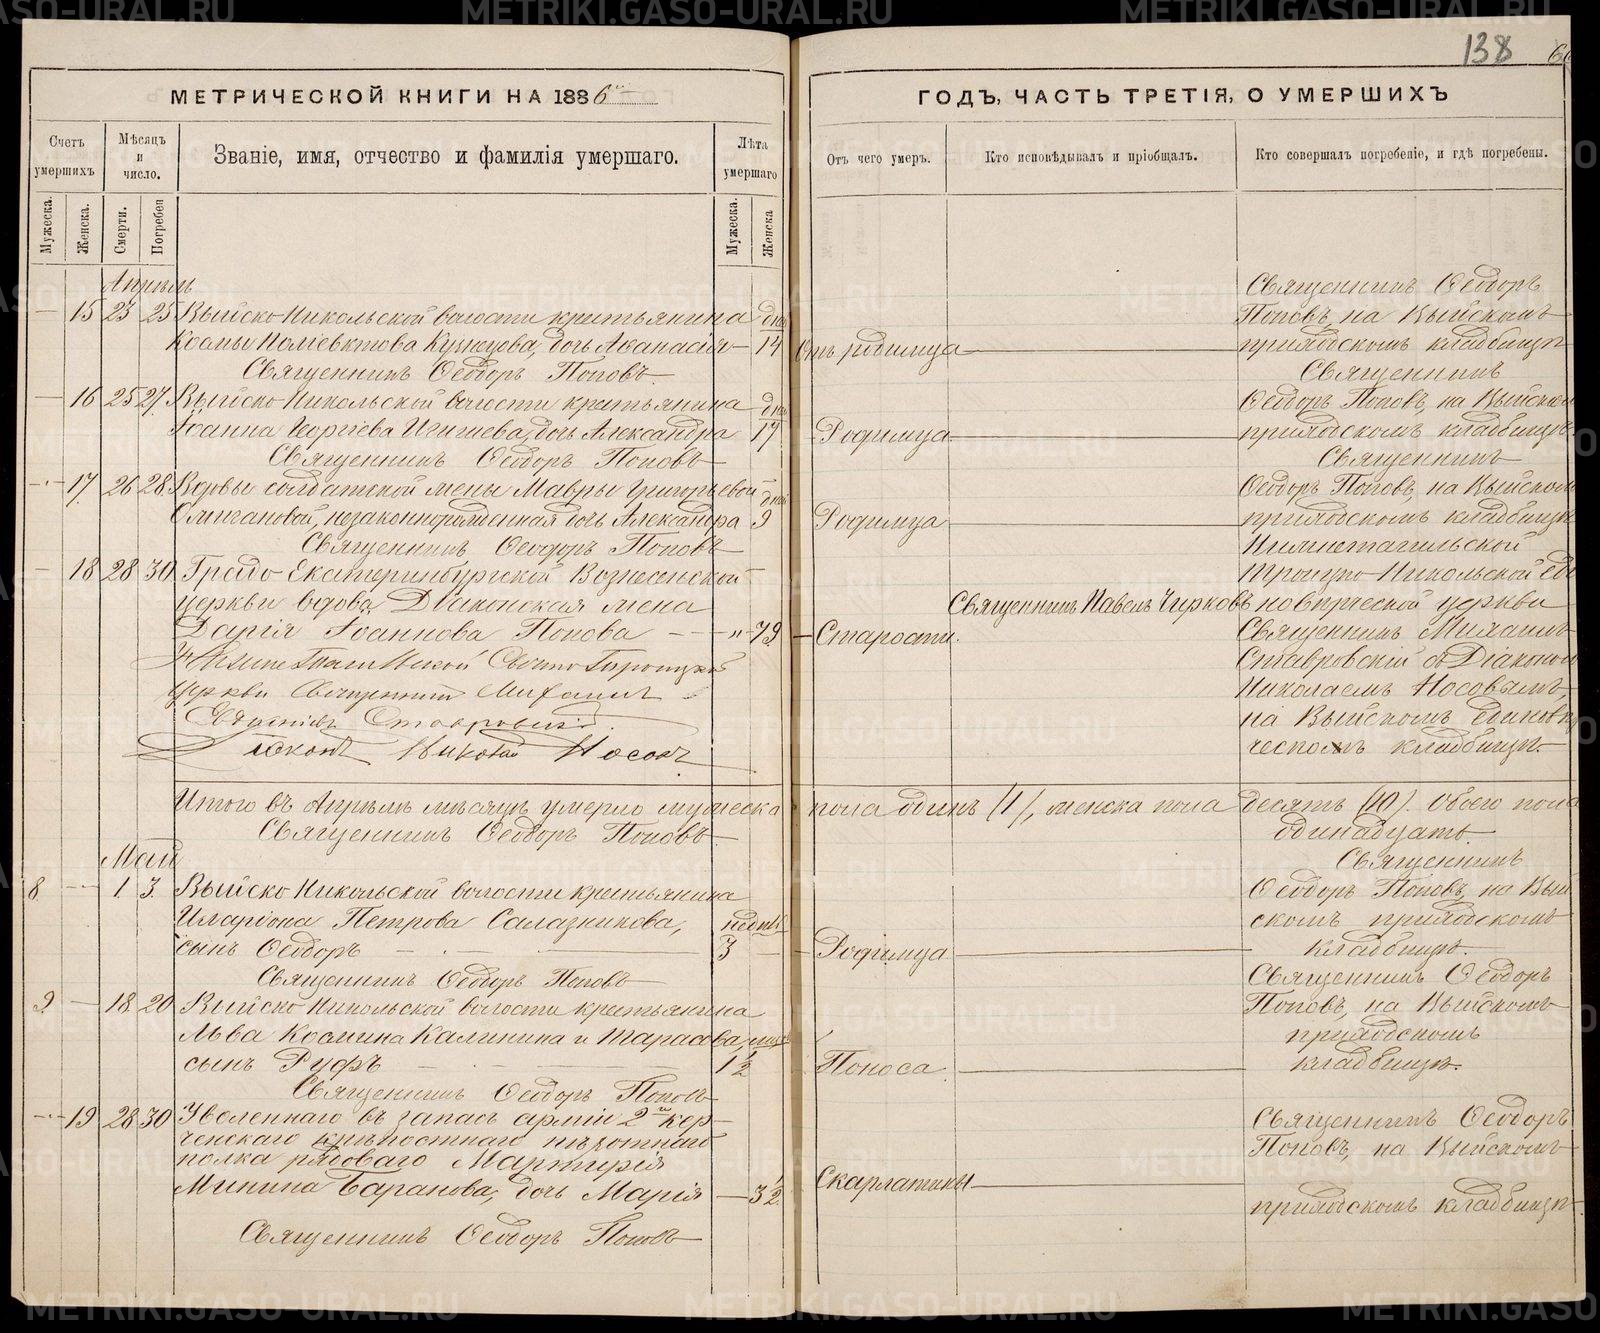 138
МЕТРИЧЕСКОЙ КНИГИ НА 1886
ГОДЪ, ЧАСТЬ ТРЕТІЯ, О УМЕРШИХЪ
Счетъ умершихъ
Мѣсяцъ и число.
Званіе, имя, отчество и фамилія умершаго.
Лѣта умершаго
Отъ чего умеръ.
Кто исповѣдывалъ и пріобщалъ.
Кто совершалъ погребеніе, и гдѣ погребены.
Мужеска.
Женска.
Смерти.
Погребен
Мужеска.
Женска
Апрѣль
15 23 25 Выйско-Никольской волости крестьянина дней
Космы Поліевктова Кузнецова, дочь Аѳанасія 14 Отъ родимца
Священникъ Ѳеодоръ Поповъ.
Священникъ Ѳеодоръ
Поповъ, на Выйскомъ
приходскомъ кладбищѣ
16 25 27 Выйско-Никольской волости крестьянина дней
Іоанна Георгіева Игишева, дочь Александра 17 Родимца
Священникъ Ѳеодоръ Поповъ
Священникъ
Ѳеодоръ Поповъ, на Выйском
приходскомъ кладбищѣ.
17. 26 28 Вдовы солдатской жены Мавры Григорьевой дней
незаконнорожденная дочь Александра 9 Родимца
Священникъ Ѳеодоръ Поповъ
Священникъ
Ѳеодоръ Поповъ, на Выйском
приходскомъ кладбищѣ
18 28 30 Градо-Екатеринбургской Вознесенской
церкви вдова, Діаконская жена
Дарія Іоаннова Попова — „ 79 Старости.
Священникъ Павелъ Чирковъ
Нижнетагильской Свято Троицкой
церкви Священникъ Михаилъ
Ставровскій.
Діаконъ Николай Носовъ
Нижнетагильской
Троицко-Никольской еди
новѣрческой церкви
Священникъ Михаилъ
Ставровскій съ Діаконом
Николаемъ Носовымъ,
на Выйскомъ единовѣр
ческомъ кладбищѣ
Итого въ Апрѣлѣ мѣсяцѣ умерло мужеска пола одинъ (1), женска пола десять (10). Обоего пола
одинадцать.
Священникъ Ѳеодоръ Поповъ.
Май
8 1 3. Выйско-Никольской волости крестьянина
Иларіона Петрова Салазникова, недѣль
сынъ Ѳеодоръ 3 Родимца
Священникъ Ѳеодоръ Поповъ
Священникъ
Ѳеодоръ Поповъ, на Вый
скомъ приходскомъ
кладбищѣ.
9 18 20 Выйско-Никольской волости крестьянина
Льва Космина Калинина и Тарасова,
сынъ Руфъ 1½ Поноса
Священникъ Ѳеодоръ Поповъ
Священникъ Ѳеодоръ
Поповъ, на Выйскомъ
приходскомъ
кладбищѣ.
19 28 30 Уволеннаго въ запасъ арміи 2го кер-
ченскаго крѣпостнаго пѣхотнаго
полка рядоваго Мартирія
Минина Баранова, дочь Марія — 3½ Скарлатины
Священникъ Ѳеодоръ Поповъ
Священникъ Ѳеодоръ
Поповъ, на Выйскомъ
приходскомъ кладбищѣ.
METRIKI.GASO-URAL.RU